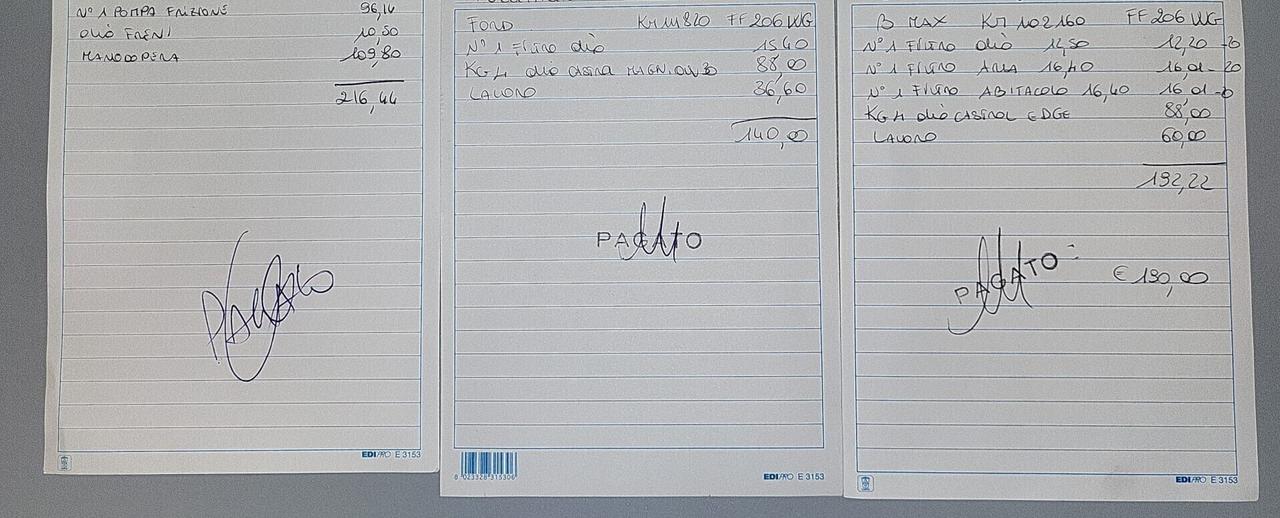 N° 1 POMPA FRIZIONE 96,14
OLIO FRENI 10,50
MANODOPERA 109,80
216,44
PAGATO
EDIPRO E 3153
FORD KM 111820 FF 206 WG
N° 1 FILTRO OLIO 15,40
KG 4 OLIO 88,00
LAVORO 36,60
140,00
PAGATO
8 023328 315306
EDIPRO E 3153
B MAX KM 102160 FF 206 WG
N° 1 FILTRO OLIO 12,50 12,20 -20
N° 1 FILTRO ARIA 16,40 16,01 - 20
N° 1 FILTRO ABITACOLO 16,40 16,01 -20
KG 4 OLIO CASTROL EDGE 88,00
LAVORO 60,00
192,22
PAGATO : € 190,00
EDIPRO E 3153